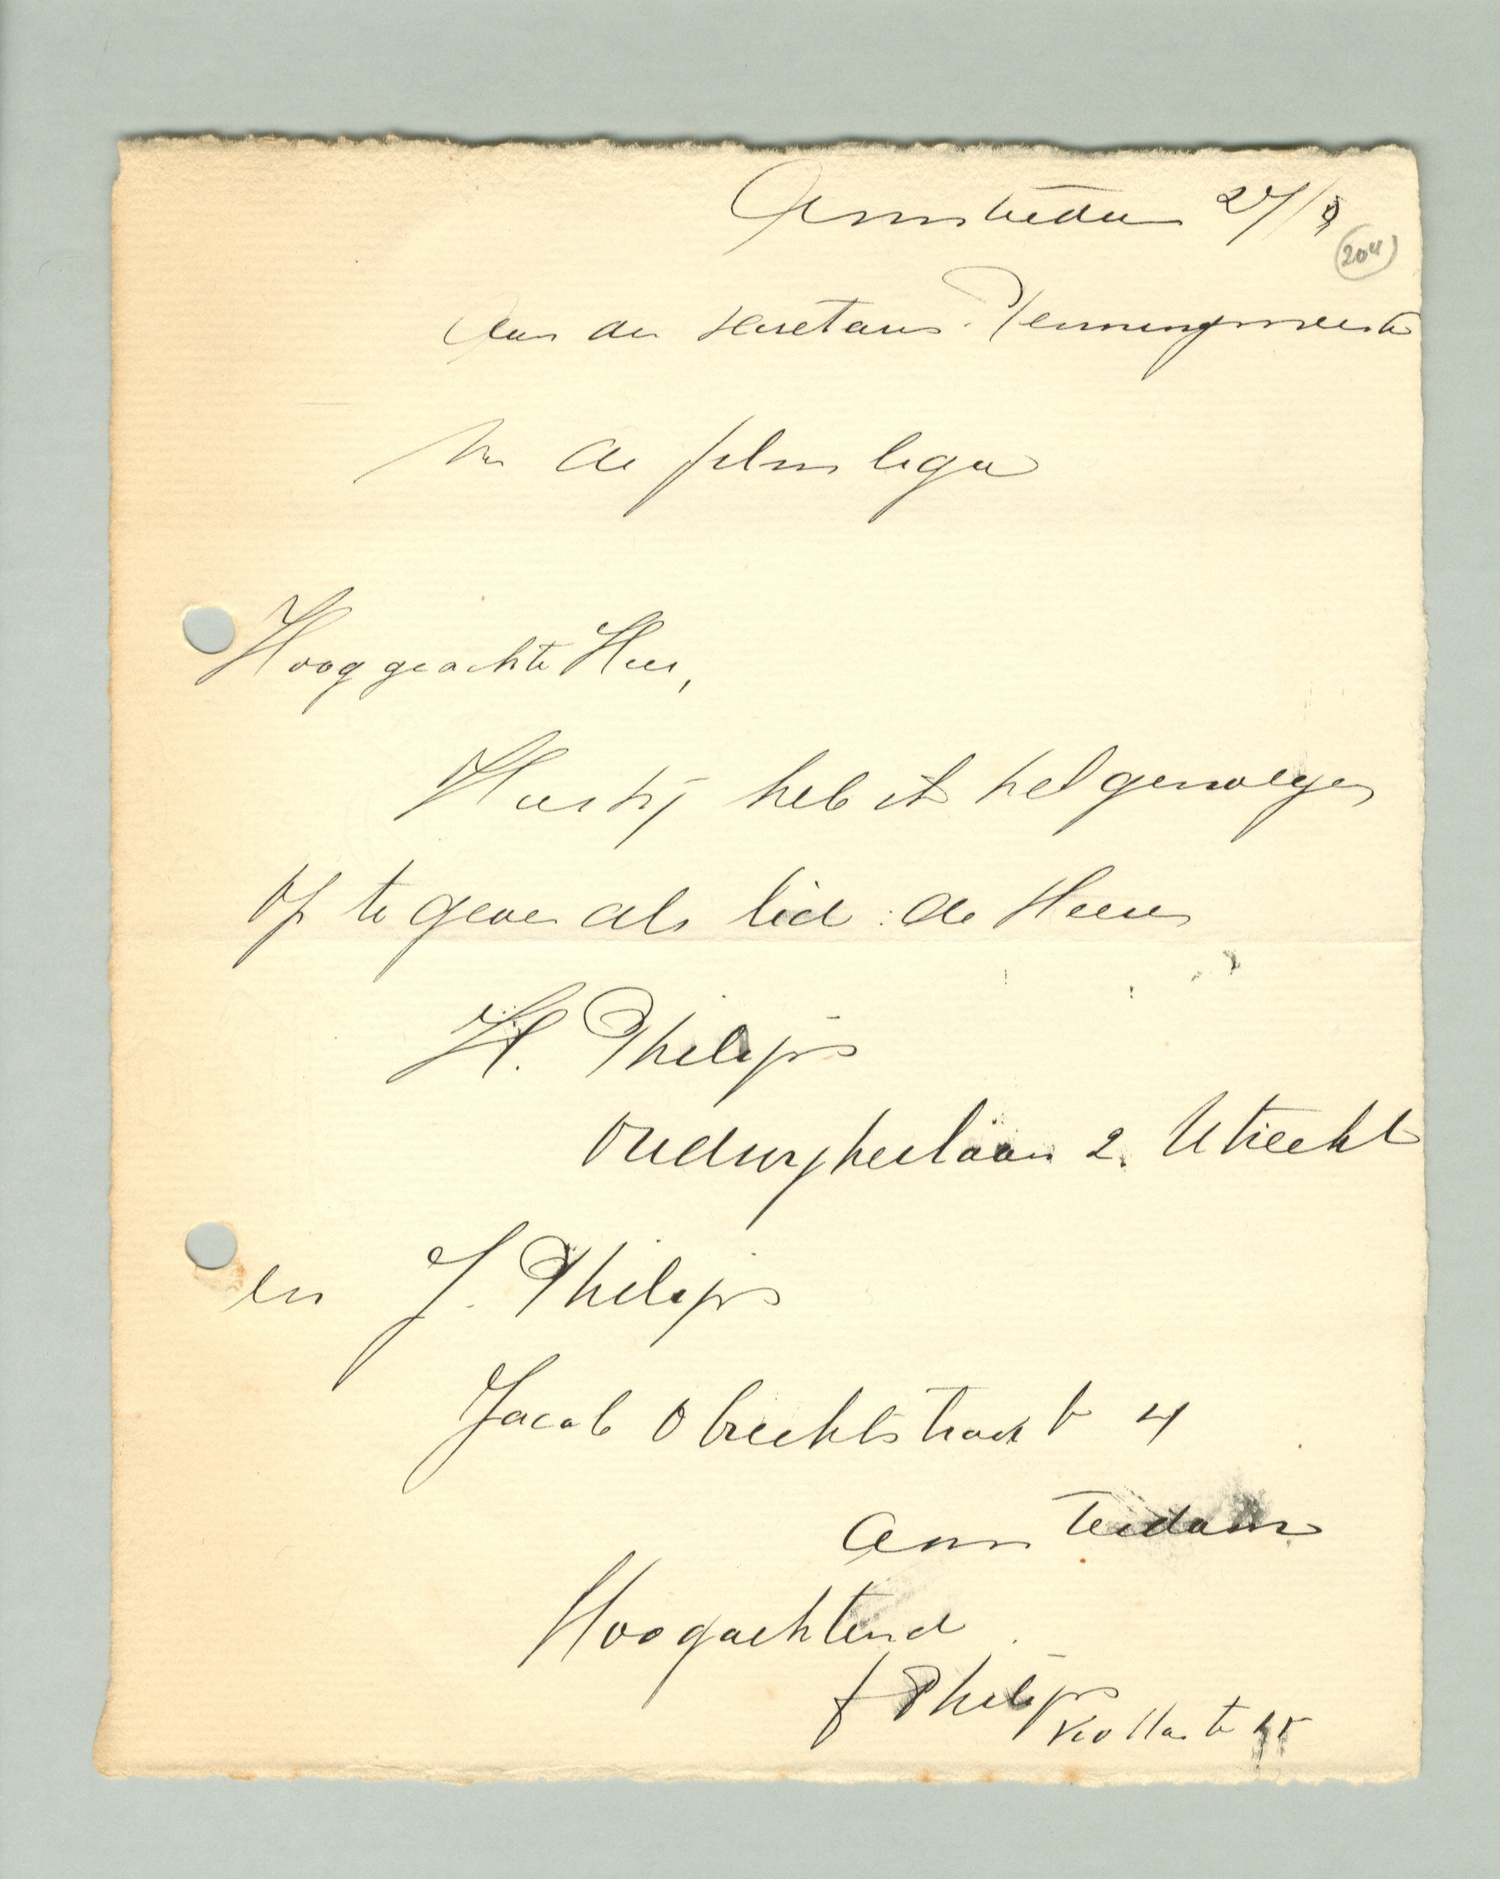 Amsterdam 27/9
204
Aan den secretaris-Penningmeester
van de filmliga
Hooggeachte Heer,
Hierbij heb ik het genoegen
op te geven als lid: de Heeren
H. Philips
Oudwijkerlaan 2. Utrecht
en J. Philips
Jacob Obrechtstraat 4
Amsterdam
Hoogachtend
J Philips